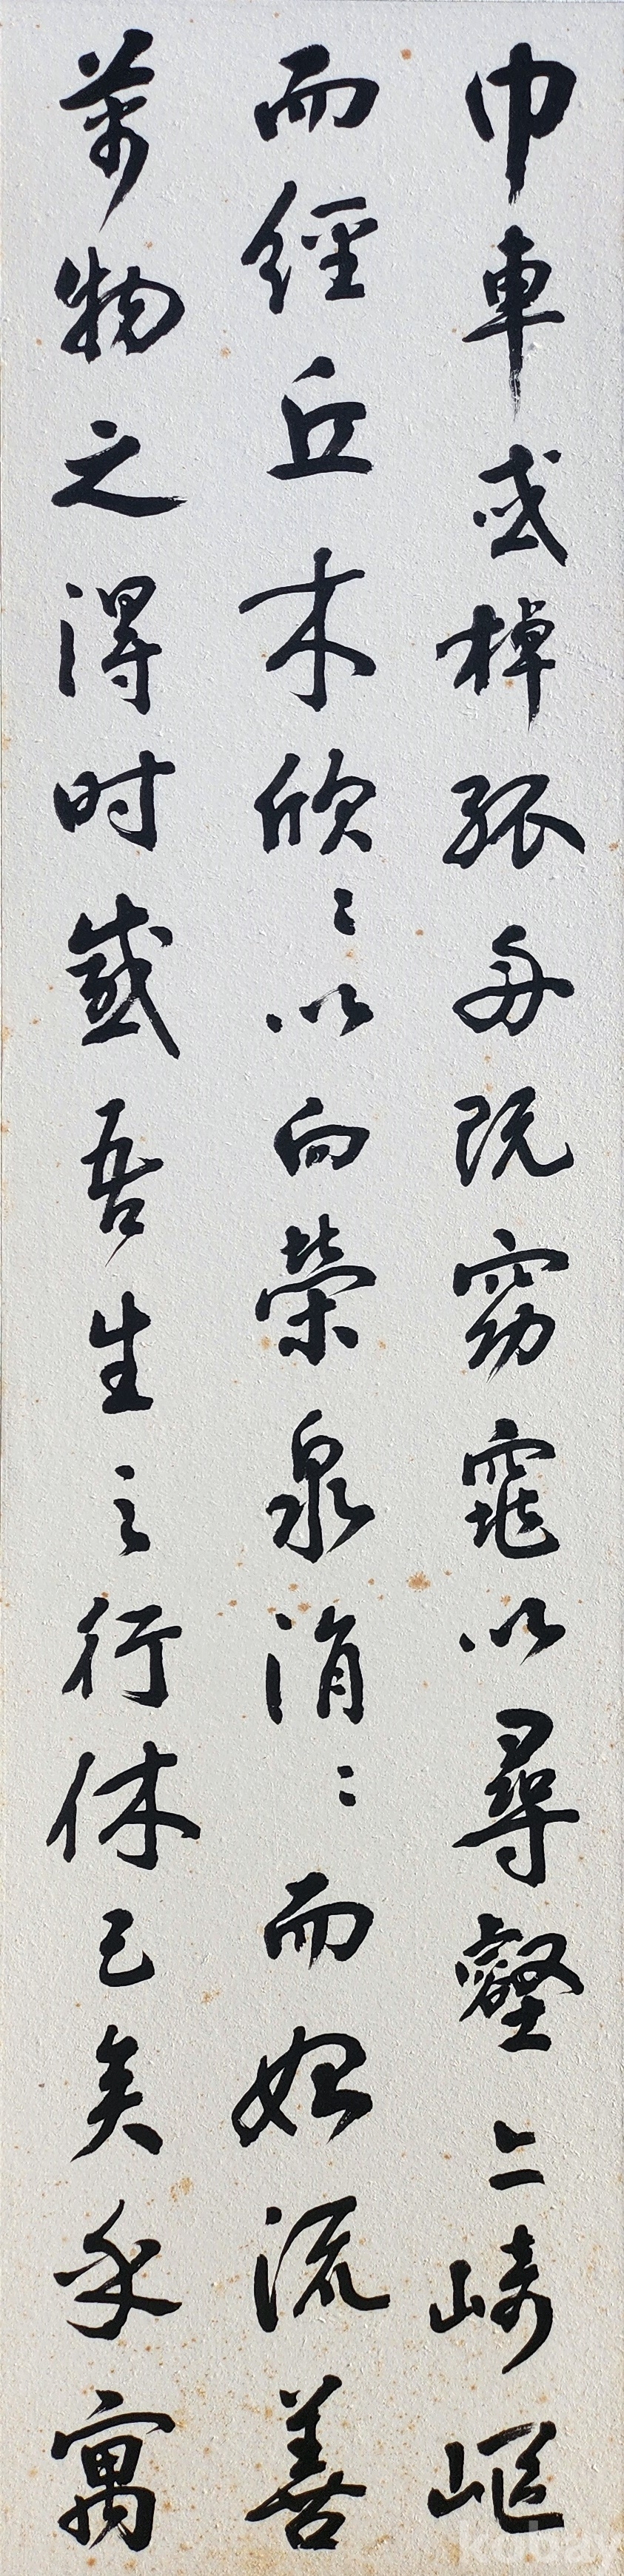 巾車或棹孤舟既窈窕以尋壑亡崎嶇
而經丘木欣〻以向榮泉涓〻而始流善
萬物之得时感吾生之行休已矣乎寓
kobay